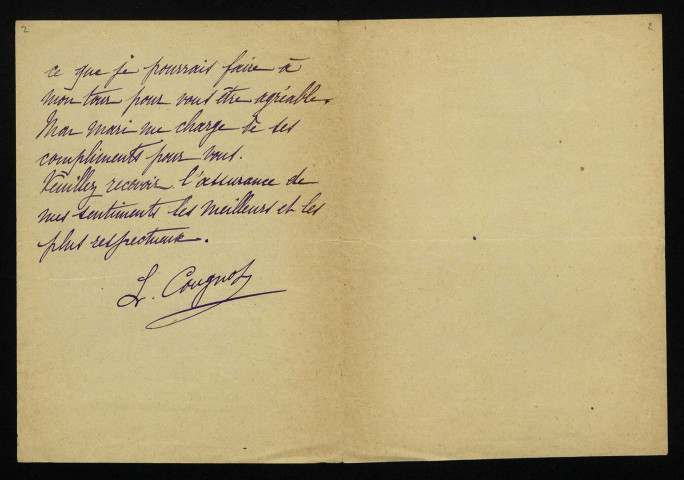 2
2
ce que je pourrais faire à
mon tour pour vous être agréable.
Mon mari me charge de ses
compliments pour vous.
Veuillez recevoir l'assurance de
mes sentiments les meilleurs et les
plus respectueux.
L. Cougnot